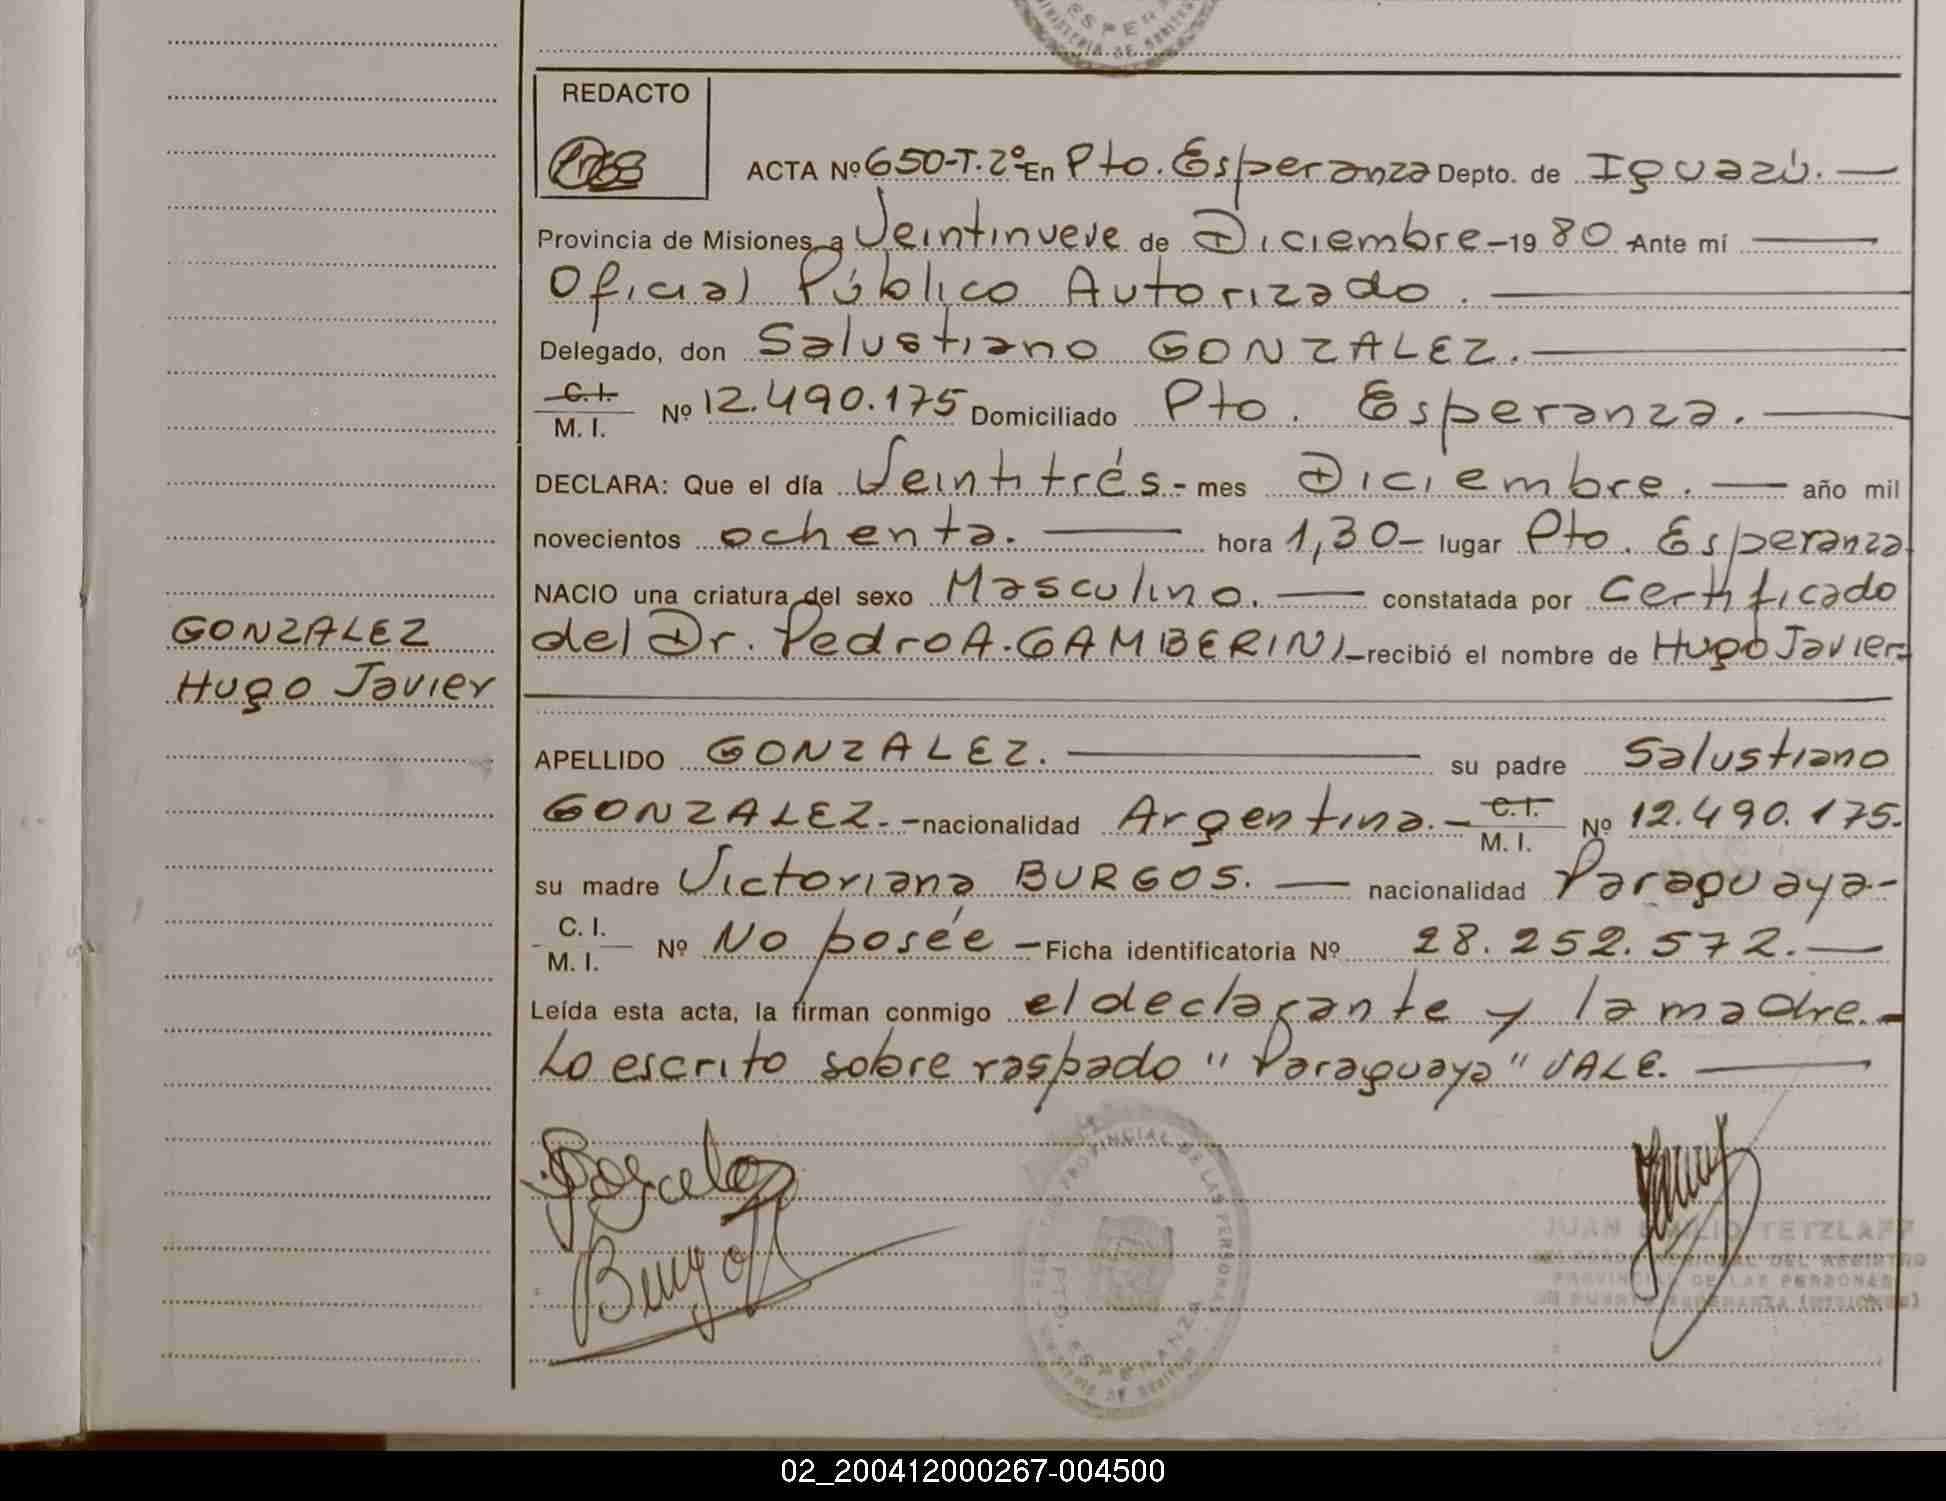 ESPER
MINISTERIO DE GOBIERNO
REDACTO
ACTA Nº 650-T.2º En Pto. Esperanza Depto. de Iguazú.
Provincia de Misiones a Veintinueve de Diciembre-19 80 Ante mí
Oficial Público Autorizado.
Delegado, don Salustiano GONZALEZ.
C.I.
M. I. Nº 12.490.175 Domiciliado Pto. Esperanza.
DECLARA: Que el día Veintitrés.- mes Diciembre. año mil
novecientos ochenta. hora 1,30- lugar Pto. Esperanza
NACIO una criatura del sexo Masculino. constatada por Certificado
del Dr. Pedro A. GAMBERINI-recibió el nombre de Hugo Javier-
GONZALEZ
Hugo Javier
APELLIDO GONZALEZ. su padre Salustiano
GONZALEZ.-nacionalidad Argentina.- C.I.
M. I. Nº 12.490.175.
su madre Victoriana BURGOS. nacionalidad Paraguaya-
C. I.
M. I. Nº No posée -Ficha identificatoria Nº 28.252.572.
Leída esta acta, la firman conmigo el declarante y la madre.-
Lo escrito sobre raspado "Paraguaya" VALE.
PROVINCIAL DE LAS PERSONAS
PTO. ESPERANZA
JUAN EMILIO TETZLAFF
DELEGADO REGIONAL DEL REGISTRO
PROVINCIAL DE LAS PERSONAS
DE PUERTO ESPERANZA (MISIONES)
02_200412000267-004500